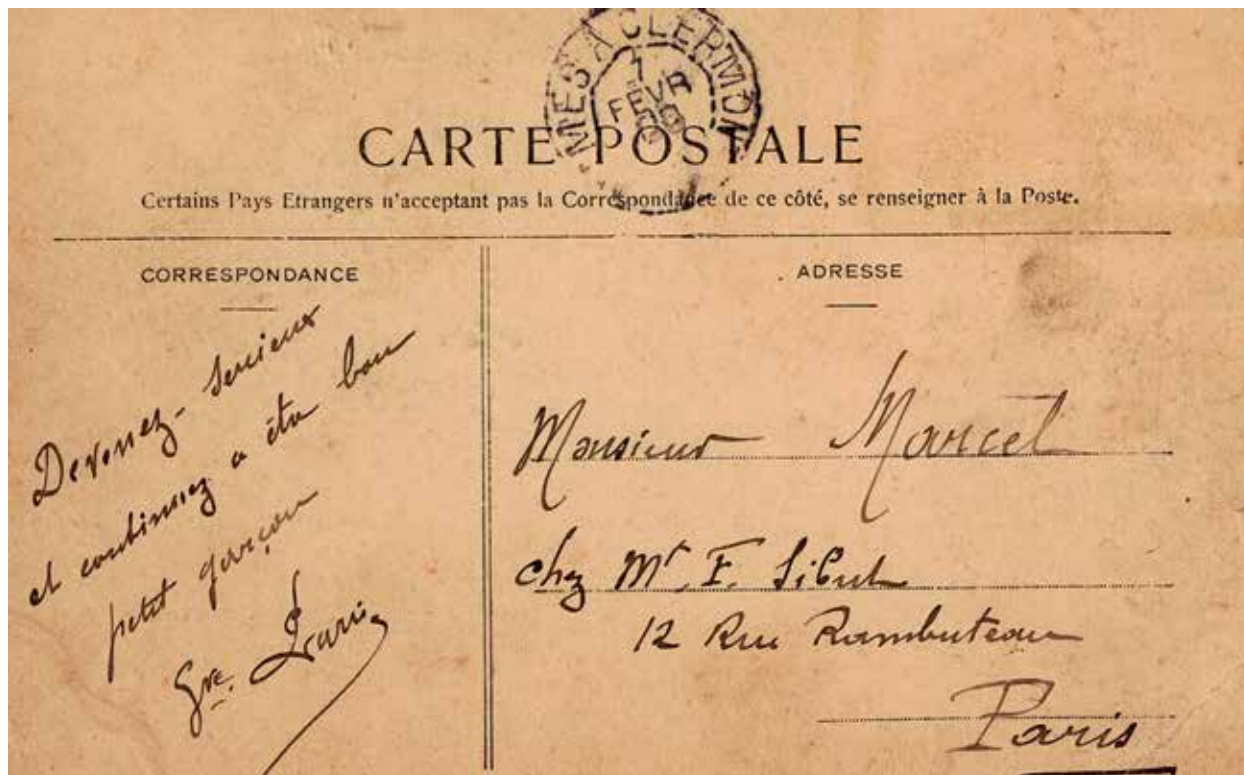 MIES A CLERMON
FEVR
CARTE POSTALE
Certains Pays Etrangers n'acceptant pas la Correspondance de ce côté, se renseigner à la Poste.
CORRESPONDANCE
Devenez-serieux
et continuez a être bon
petit garçon
Gve.
ADRESSE
Monsieur Marcel
chez Mr. F. Sibut
12 Rue Rambuteau
Paris